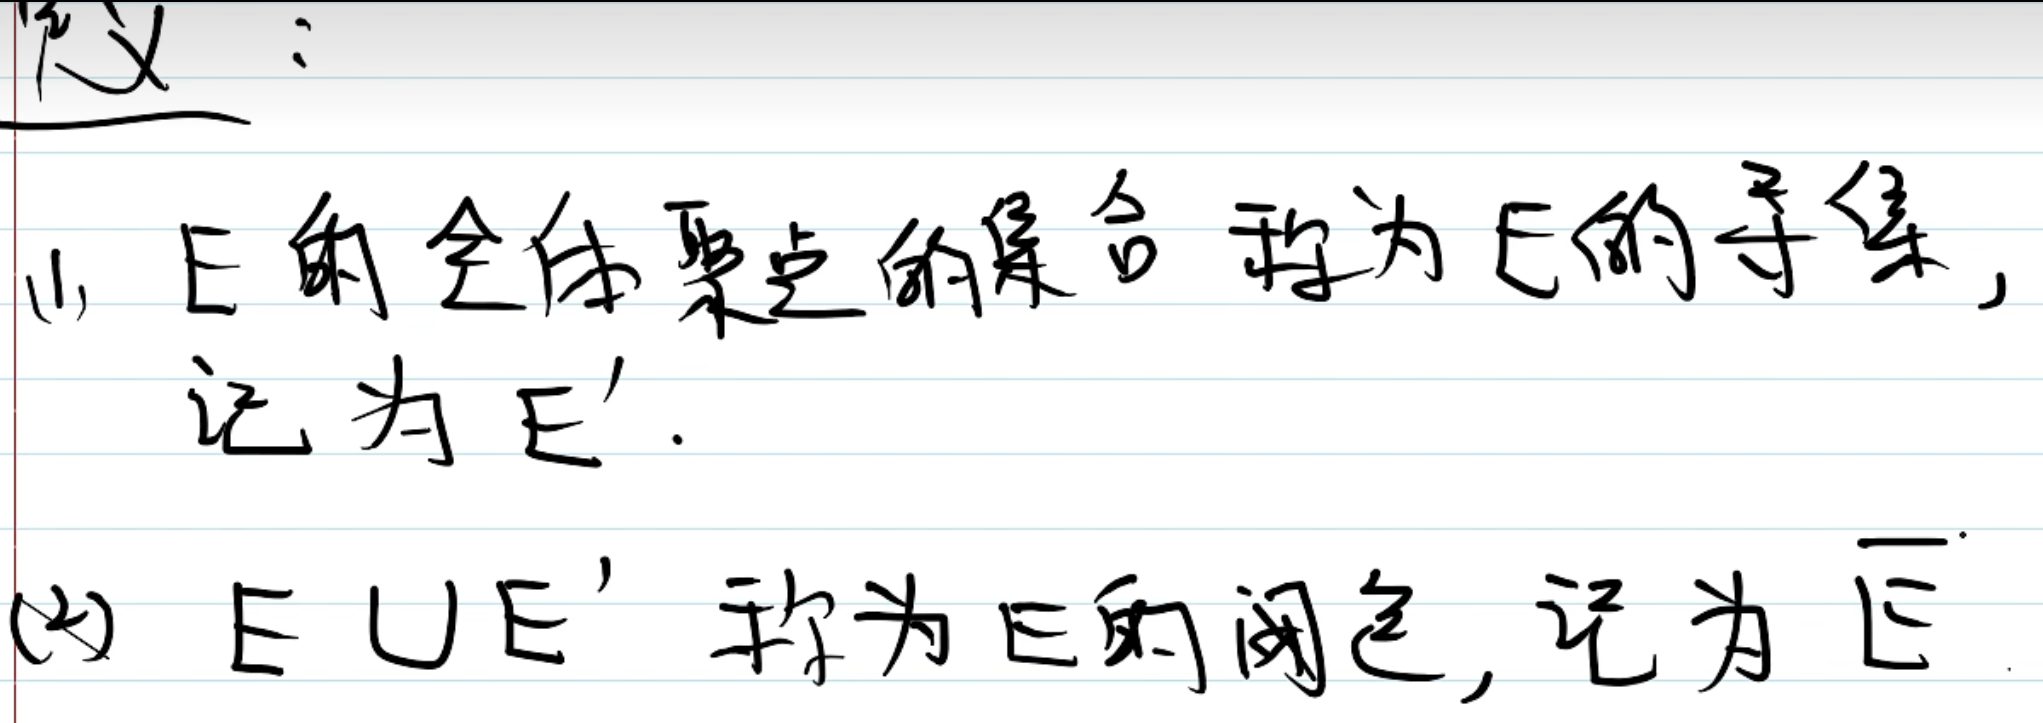 定义:
(1) E的全体聚点的集合称为E的导集,
记为E'.
(2) E∪E' 称为E的闭包,记为 E̅.